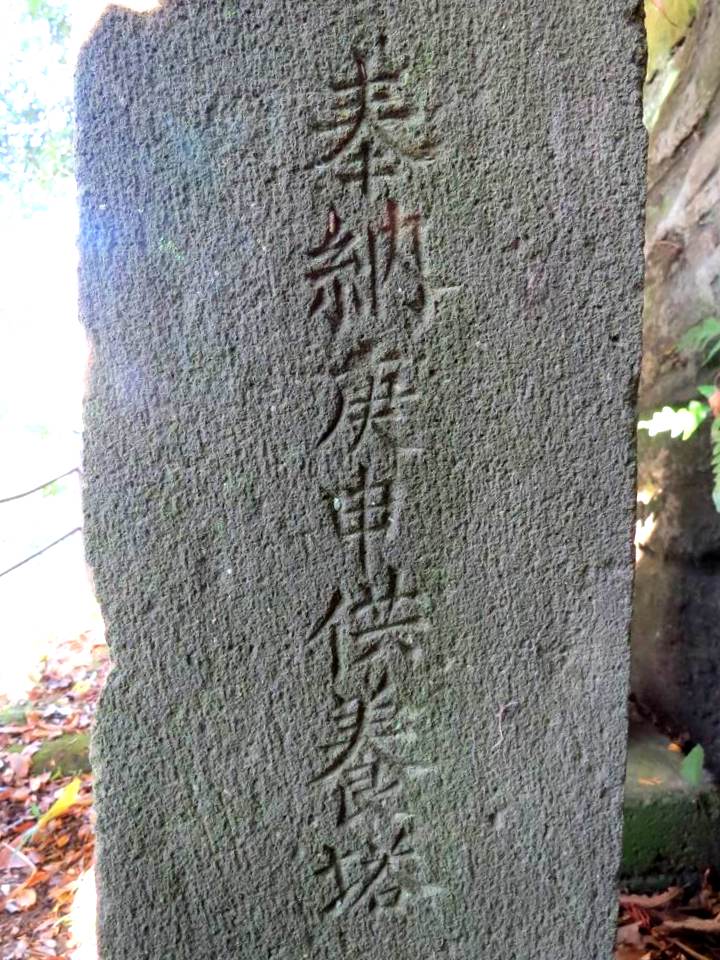 奉納庚申供養塔